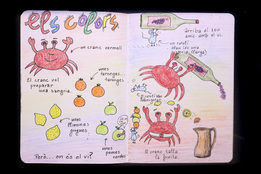 els colors
un cranc vermell
El cranc vol
preparar
una sangria
unes
taronges
taronges
unes
llimones
grogues
unes
pomes
verdes
Però... on és el vi?
Arriba el seu
amic amb el vi.
un ratolí
El cranc talla
la fruita.